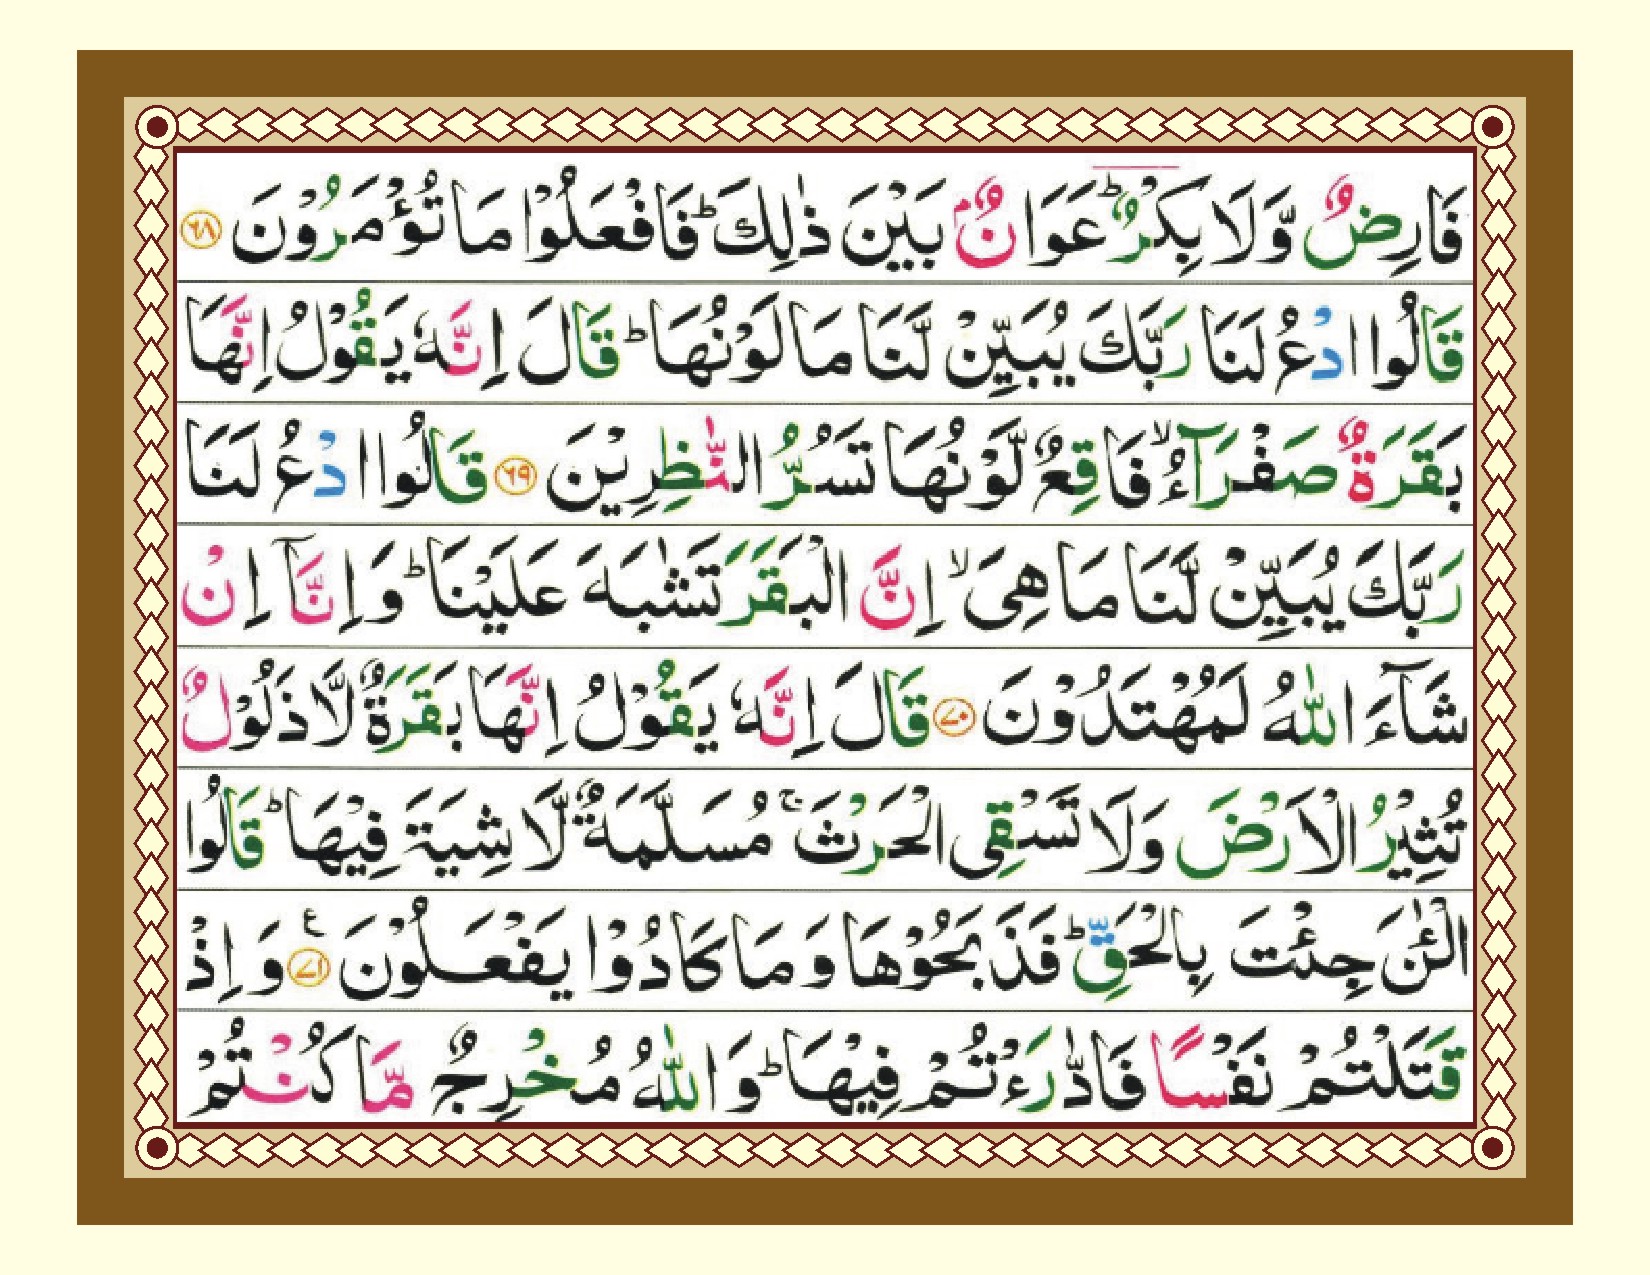 فَارِضٌ وَّلَا بِكْرٌ ؕ عَوَانٌۢ بَيْنَ ذٰلِكَ ؕ فَافْعَلُوْا مَا تُؤْمَرُوْنَ ﴿۶۸﴾
قَالُوا ادْعُ لَنَا رَبَّكَ يُبَيِّنْ لَّنَا مَا لَوْنُهَا ؕ قَالَ اِنَّهٗ يَقُوْلُ اِنَّهَا
بَقَرَةٌ صَفْرَآءُ ۙ فَاقِعٌ لَّوْنُهَا تَسُرُّ النّٰظِرِيْنَ ﴿۶۹﴾ قَالُوا ادْعُ لَنَا
رَبَّكَ يُبَيِّنْ لَّنَا مَا هِىَ ۙ اِنَّ الْبَقَرَ تَشٰبَهَ عَلَيْنَا ؕ وَاِنَّآ اِنْ
شَآءَ اللّٰهُ لَمُهْتَدُوْنَ ﴿۷۰﴾ قَالَ اِنَّهٗ يَقُوْلُ اِنَّهَا بَقَرَةٌ لَّا ذَلُوْلٌ
تُثِيْرُ الْاَرْضَ وَلَا تَسْقِى الْحَرْثَ ۚ مُسَلَّمَةٌ لَّا شِيَةَ فِيْهَا ؕ قَالُوا
الْـٰٔنَ جِئْتَ بِالْحَقِّ ؕ فَذَبَحُوْهَا وَمَا كَادُوْا يَفْعَلُوْنَ ﴿۷۱﴾ ع وَاِذْ
قَتَلْتُمْ نَفْسًا فَادّٰرَءْتُمْ فِيْهَا ؕ وَاللّٰهُ مُخْرِجٌ مَّا كُنْتُمْ